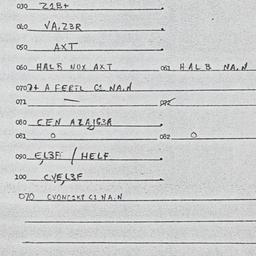 030 Z1B+
040 VA.Z3R
050 AXT
060 HALB NOX AXT 061 HALB NA.N
070 7+ A FERTL C1 NA.N
071 — 072
080 CEN AZAJG3R
081 0 082 0
090 EL3F / HELF
100 CVEL3F
070 CVONC1KP C1 NA.N